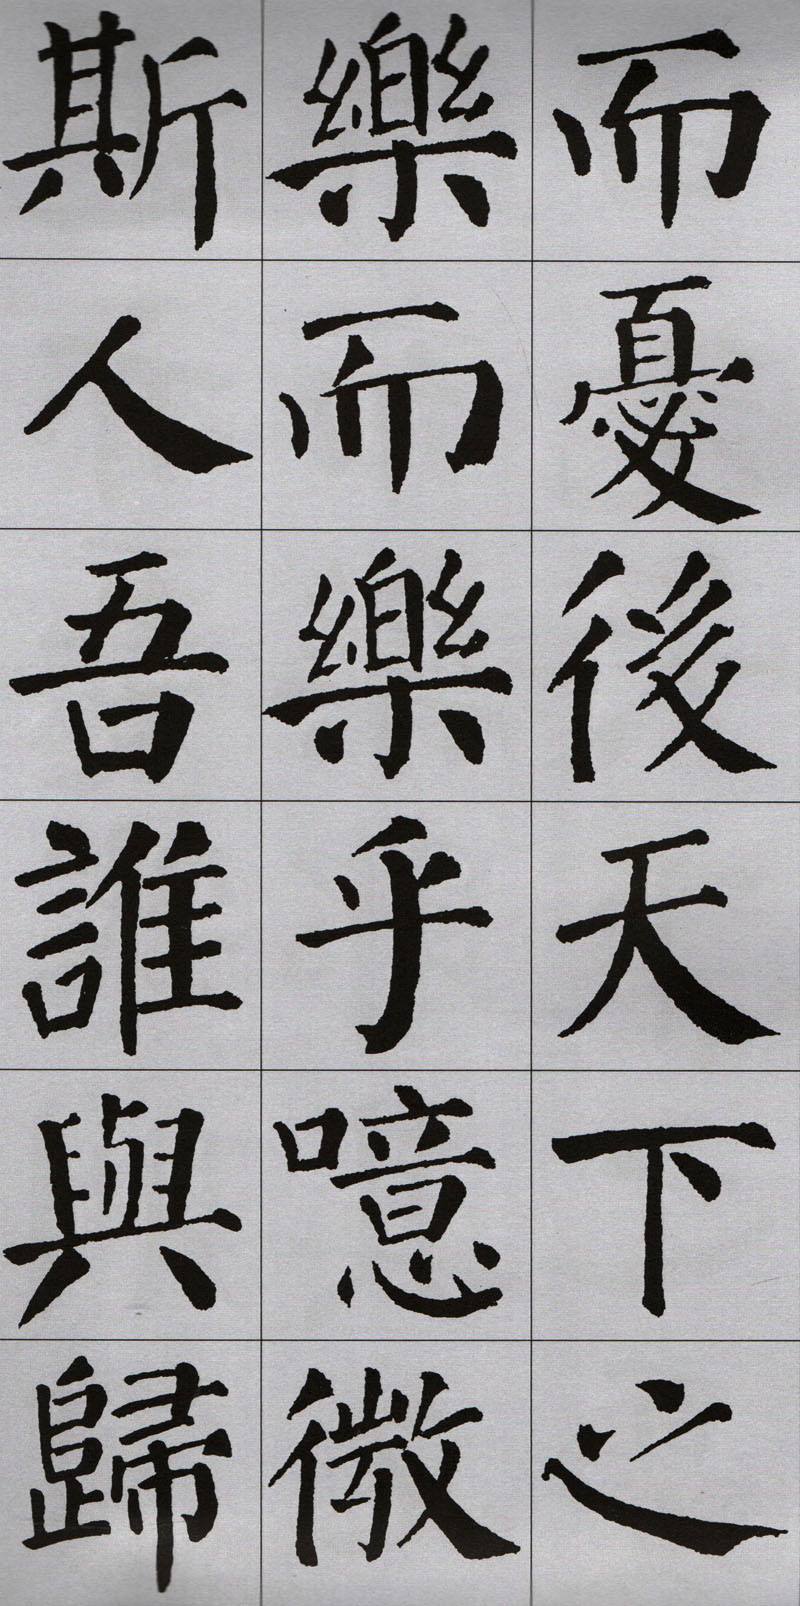 而憂後天下之
樂而樂乎噫微
斯人吾誰與歸